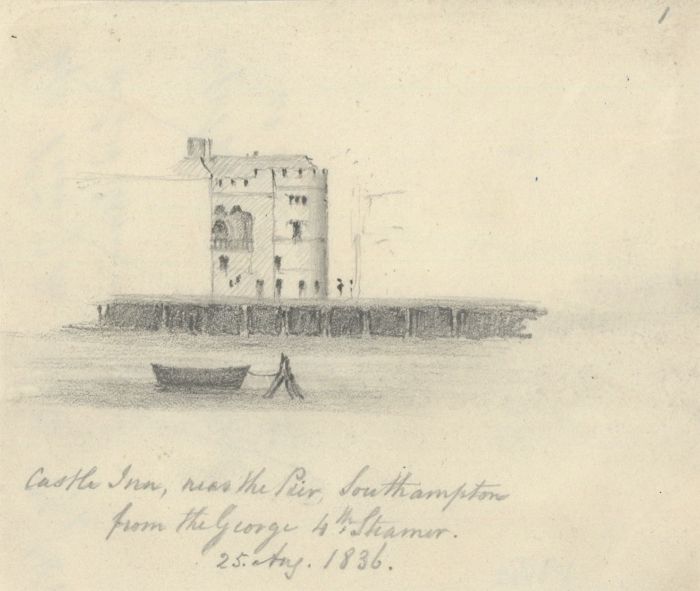 1
Castle Inn, near the Pier, Southampton
from the George 4th Steamer.
25. Aug. 1836.